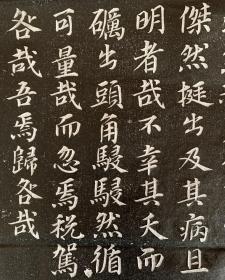 傑然挺出及其病且
明者哉不幸其夭而
礪出頭角駸駸然循
可量哉而忽焉税駕
咎哉吾焉歸咎哉